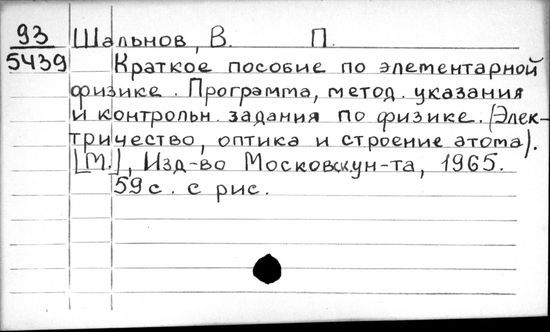 93 Шальнов, В. П.
5439 Краткое пособие по элементарной
физике. Программа, метод. указания
и контрольн. задания по физике. (Элек-
тричество, оптика и строение атома).
[М.], Изд-во Московск. ун-та, 1965.
59 с. с рис.